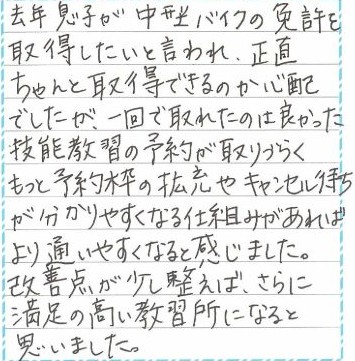 去年息子が中型バイクの免許を
取得したいと言われ、正直
ちゃんと取得できるのか心配
でしたが、一回で取れたのは良かった
技能教習の予約が取りづらく
もっと予約枠の拡充やキャンセル待ち
が分かりやすくなる仕組みがあれば
より通いやすくなると感じました。
改善点が少し整えば、さらに
満足の高い教習所になると
思いました。